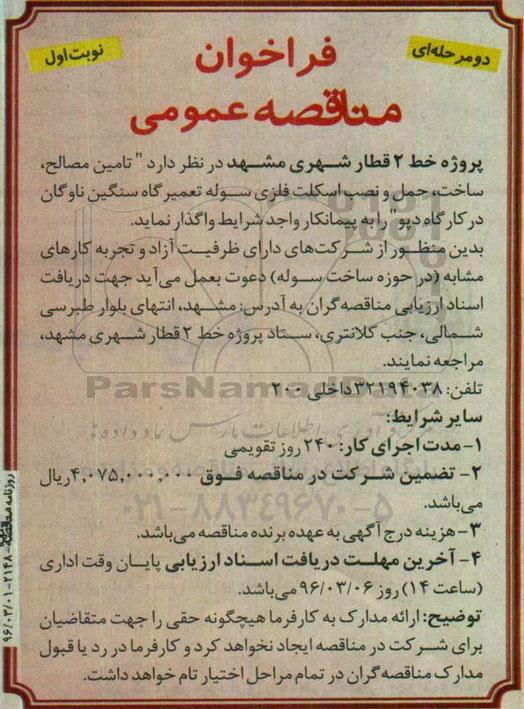 دومرحله‌ای
فراخوان
نوبت اول
مناقصه عمومی
پروژه خط ۲ قطار شهری مشهد در نظر دارد " تامین مصالح،
ساخت، حمل و نصب اسکلت فلزی سوله تعمیرگاه سنگین ناوگان
در کارگاه دپو" را به پیمانکار واجد شرایط واگذار نماید.
بدین منظور از شرکت‌های دارای ظرفیت آزاد و تجربه کارهای
مشابه (در حوزه ساخت سوله) دعوت بعمل می‌آید جهت دریافت
اسناد ارزیابی مناقصه‌گران به آدرس: مشهد، انتهای بلوار طبرسی
شمالی، جنب کلانتری، ستاد پروژه خط ۲ قطار شهری مشهد،
مراجعه نمایند.
تلفن: ۳۲۱۹۴۰۳۸ داخلی ۲۰۰
سایر شرایط:
۱- مدت اجرای کار: ۲۴۰ روز تقویمی
۲- تضمین شرکت در مناقصه فوق ۴,۰۷۵,۰۰۰,۰۰۰ ریال
می‌باشد.
۳- هزینه درج آگهی به عهده برنده مناقصه می‌باشد.
۴- آخرین مهلت دریافت اسناد ارزیابی پایان وقت اداری
(ساعت ۱۴) روز ۹۶/۰۳/۰۶ می‌باشد.
توضیح: ارائه مدارک به کارفرما هیچگونه حقی را جهت متقاضیان
برای شرکت در مناقصه ایجاد نخواهد کرد و کارفرما در رد یا قبول
مدارک مناقصه‌گران در تمام مراحل اختیار تام خواهد داشت.
روزنامه مناقصه - ۲۱۴۸ - ۹۶/۰۳/۰۱
ParsNamadData
۰۲۱-۸۸۳۴۹۶۷۰-۵